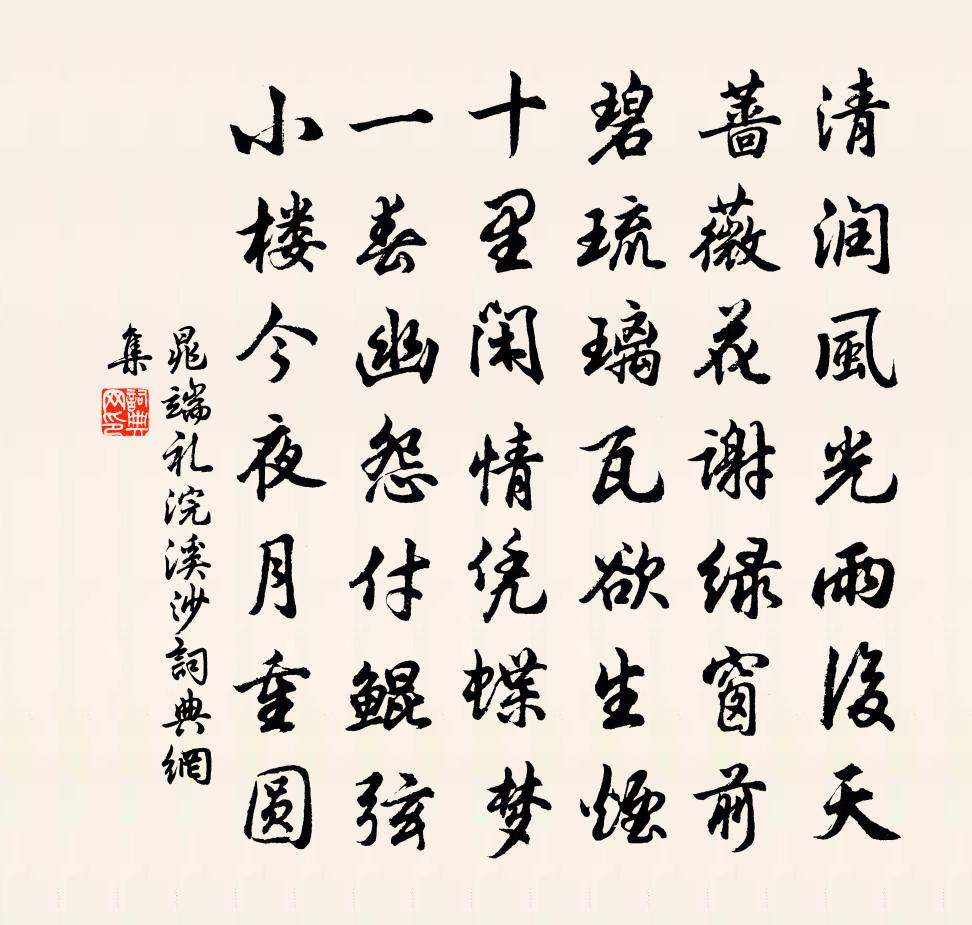 清润風光雨後天
蔷薇花谢绿窗前
碧琉璃瓦欲生煙
十里闲情凭蝶梦
一春幽怨付鲲弦
小楼今夜月重圆
晁端礼浣溪沙詞典網
集
詞典
网印